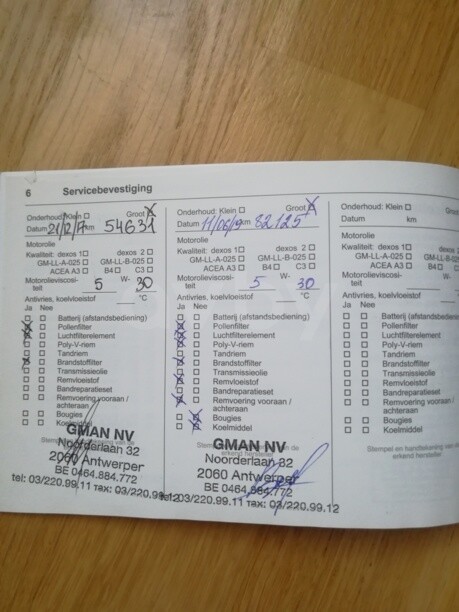 6 Servicebevestiging
Onderhoud: Klein Groot
Datum km 54631
Motorolie
Kwaliteit: dexos 1 dexos 2
GM-LL-A-025 GM-LL-B-025
ACEA A3 B4 C3
Motorolieviscositeit 5 W- 30
Antivries, koelvloeistof °C
Ja Nee
Batterij (afstandsbediening)
Pollenfilter
Luchtfilterelement
Poly-V-riem
Tandriem
Brandstoffilter
Transmissieolie
Remvloeistof
Bandreparatieset
Remvoering vooraan / achteraan
Bougies
Koelmiddel
GMAN NV
Noorderlaan 32
2060 Antwerpen
BE 0464.884.772
tel: 03/220.99.11 fax: 03/220.99.12
Onderhoud: Klein Groot
Datum 11/06/19 km 82.125
Motorolie
Kwaliteit: dexos 1 dexos 2
GM-LL-A-025 GM-LL-B-025
ACEA A3 B4 C3
Motorolieviscositeit 5 W- 30
Antivries, koelvloeistof °C
Ja Nee
Batterij (afstandsbediening)
Pollenfilter
Luchtfilterelement
Poly-V-riem
Tandriem
Brandstoffilter
Transmissieolie
Remvloeistof
Bandreparatieset
Remvoering vooraan / achteraan
Bougies
Koelmiddel
GMAN NV
Noorderlaan 32
2060 Antwerpen
BE 0464.884.772
tel: 03/220.99.11 fax: 03/220.99.12
Onderhoud: Klein
Datum km
Motorolie
Kwaliteit: dexos 1
GM-LL-A-025
ACEA A3
Motorolieviscositeit
Antivries, koelvloeistof
Ja Nee
Batterij (afstandsbed
Pollenfilter
Luchtfilterelement
Poly-V-riem
Tandriem
Brandstoffilter
Transmissieolie
Remvloeistof
Bandreparatieset
Remvoering vooraan / achteraan
Bougies
Koelmiddel
Stempel en handtekening van de
erkend hersteller